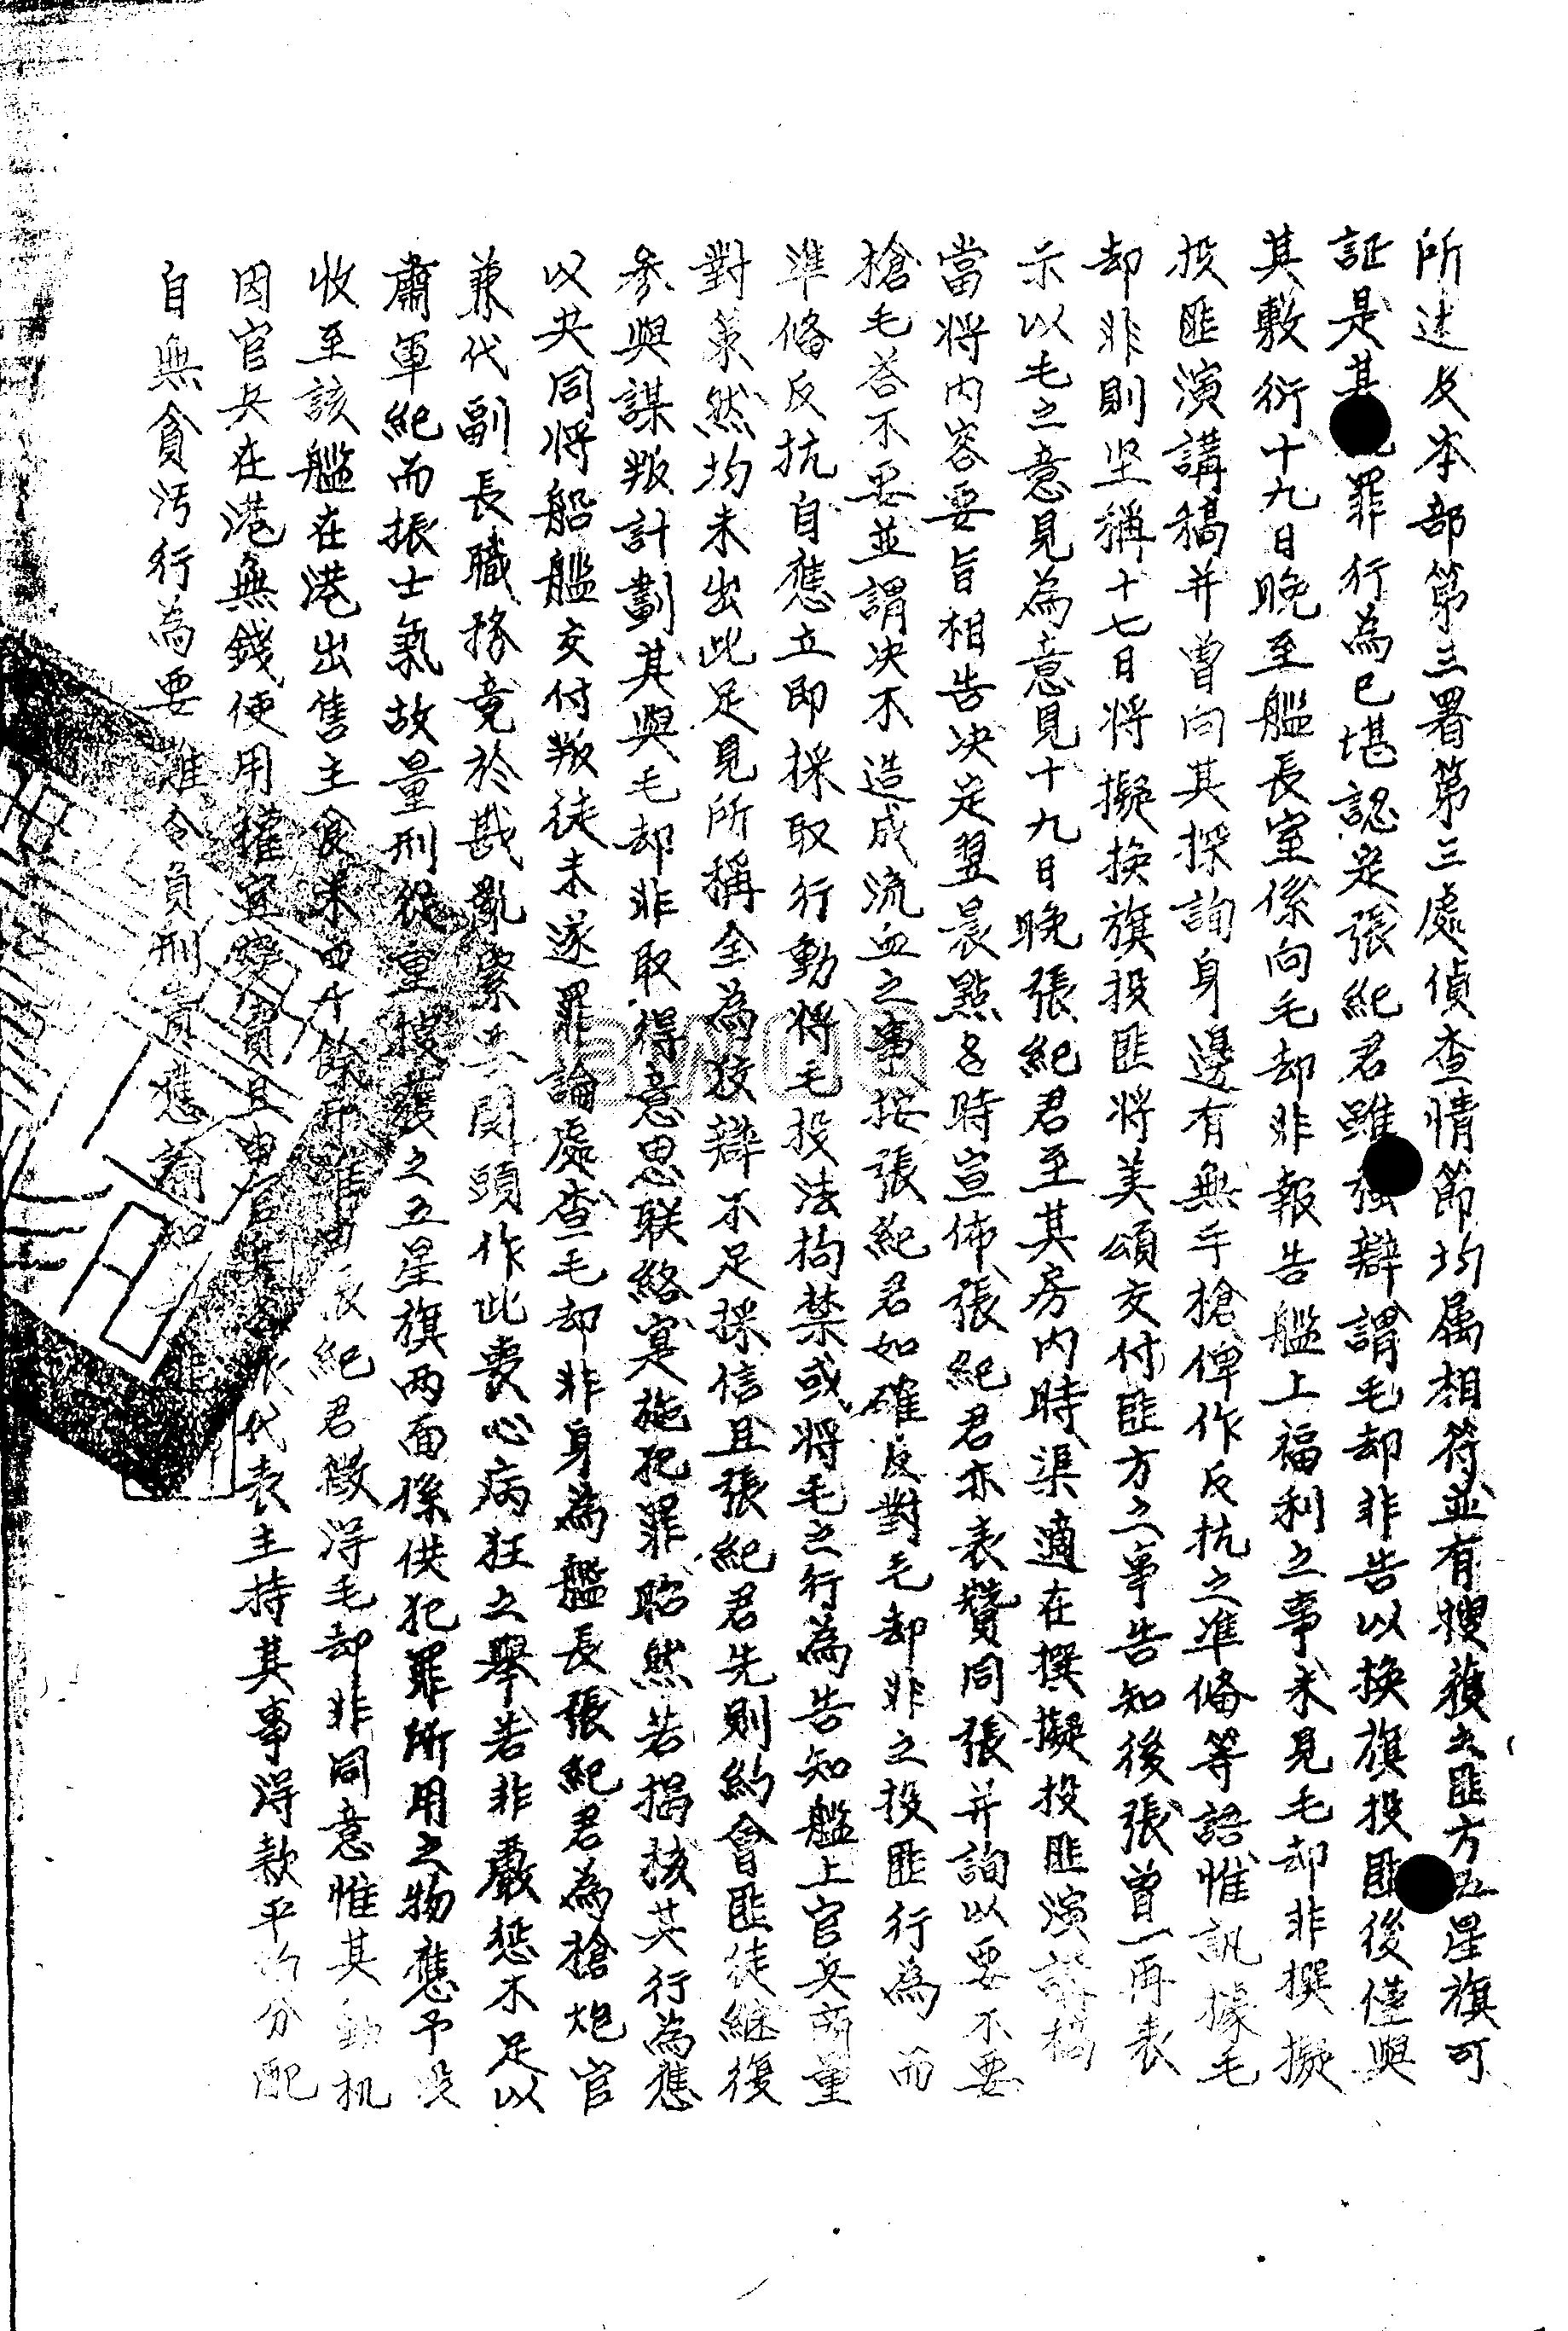 所述及本部第三署第三處偵查情節均属相符並有搜獲之匪方五星旗可
証是其罪行為已堪認定張紀君雖强辯謂毛却非告以換旗投匪後僅與
其敷衍十九日晚至艦長室係向毛却非報告艦上福利之事未見毛却非撰擬
投匪演講稿并曾向其探詢身邊有無手槍俾作反抗之準偹等語惟訊據毛
却非則坚稱十七日將擬換旗投匪將美頌交付匪方之事告知後張曾一再表
示以毛之意見為意見十九日晚張紀君至其房内時渠適在撰擬投匪演講稿
當將内容要旨相告决定翌晨點名時宣佈張紀君亦表贊同張并詢以要不要
槍毛答不要並謂决不造成流血之事按張紀君如確反對毛却非之投匪行為而
準偹反抗自應立即採取行動將毛投法拘禁或將毛之行為告知艦上官兵商量
對策然均未出此足見所稱全為狡辯不足採信且張紀君先則約會匪徒継復
參與謀叛計劃其與毛却非取得意思联絡寔施犯罪昭然若揭核其行為應
以共同將船艦交付叛徒未遂罪論處查毛却非身為艦長張紀君為槍炮官
兼代副長職務竟於戡亂緊要関頭作此喪心病狂之舉若非嚴惩不足以
肅軍紀而振士氣故量刑從重搜獲之五星旗两面係供犯罪所用之物應予没
收至該艦在港出售主食米四千餘斤雖由張紀君徵得毛却非同意惟其動机
因官兵在港無錢使用權宜變賣且由官兵代表主持其事得款平均分配
自無貪汚行為要难令負刑責應諭知